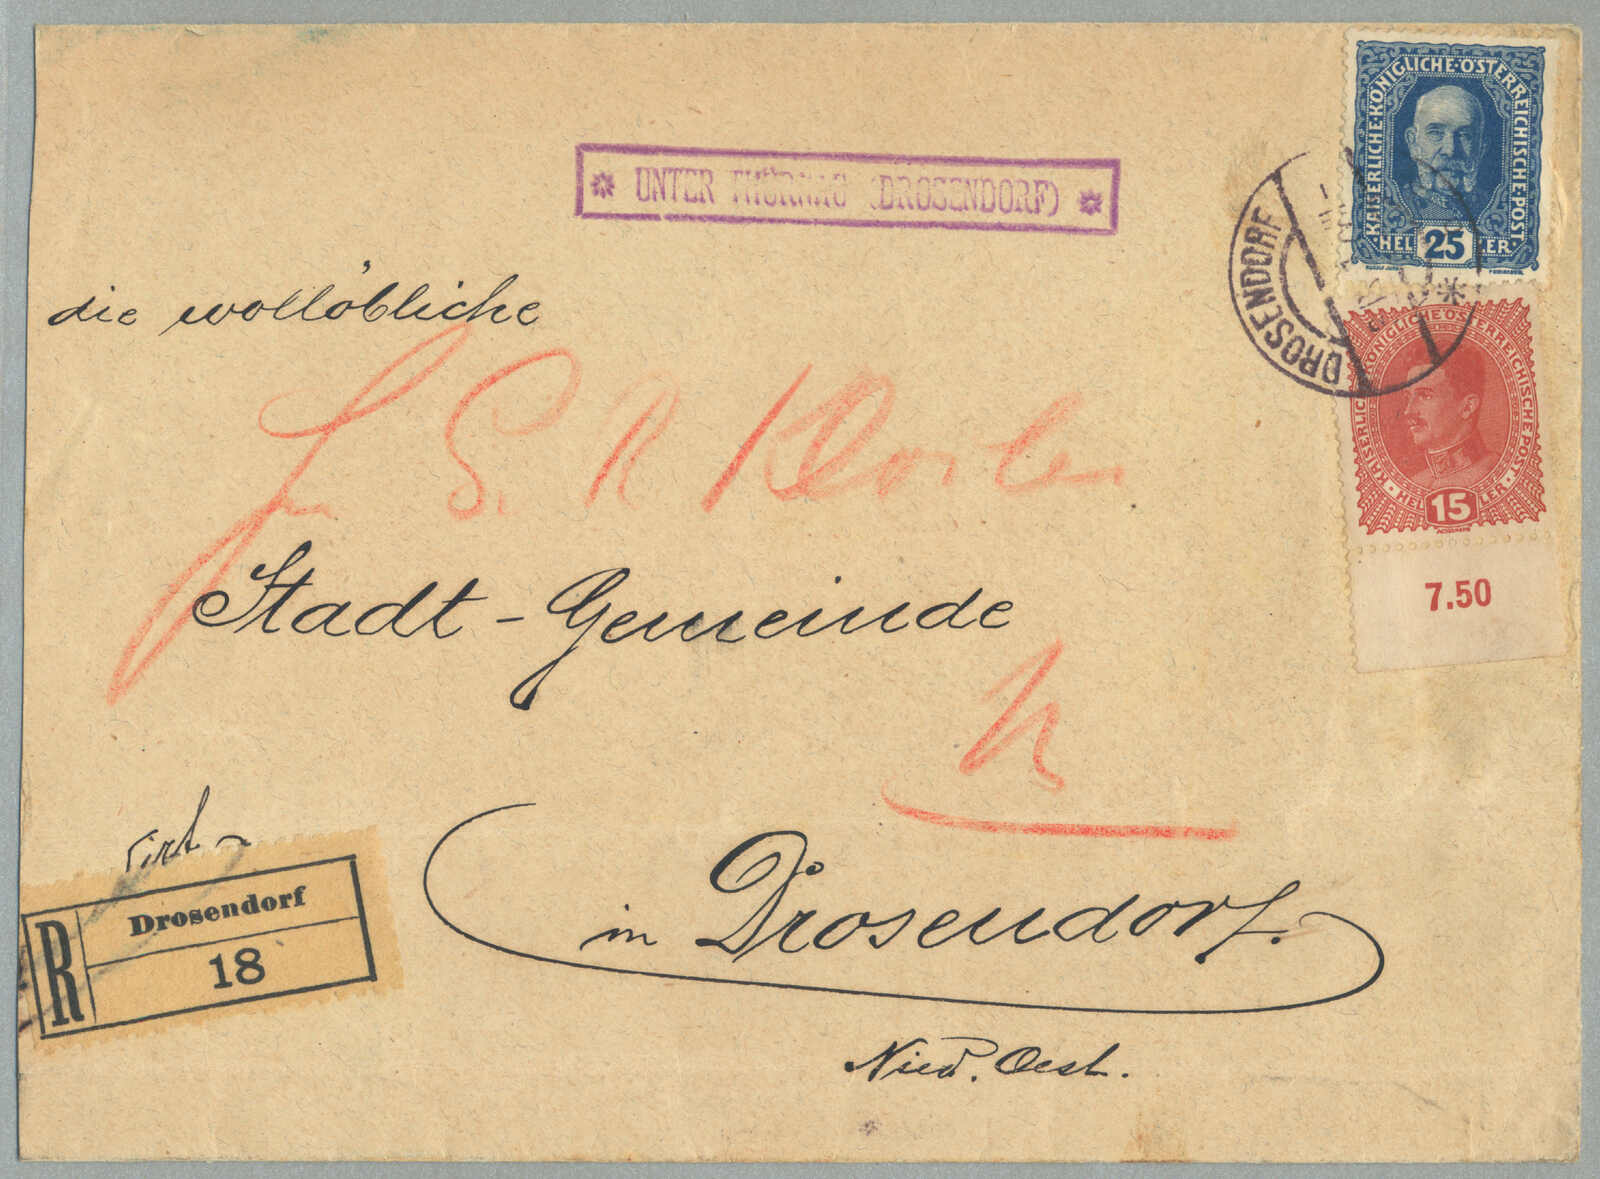 * UNTER THÜRNAU (DROSENDORF) *
KAISERLICHE·KÖNIGLICHE·ÖSTERREICHISCHE·POST
HELLER
25
DROSENDORF
KAISERLICHE KÖNIGLICHE ÖSTERREICHISCHE POST
HELLER
15
7.50
die wollöbliche
Stadt-Gemeinde
R
Drosendorf
18
in Drosendorf.
Nied. Oest.